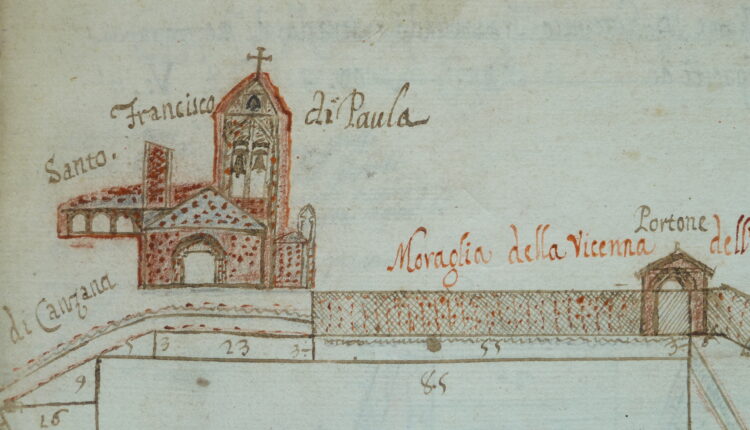 Santo. Francisco di Paula
Portone
Moraglia della Vicenna dell
di Canzana
5 3 23 3 55 3
9 85
16